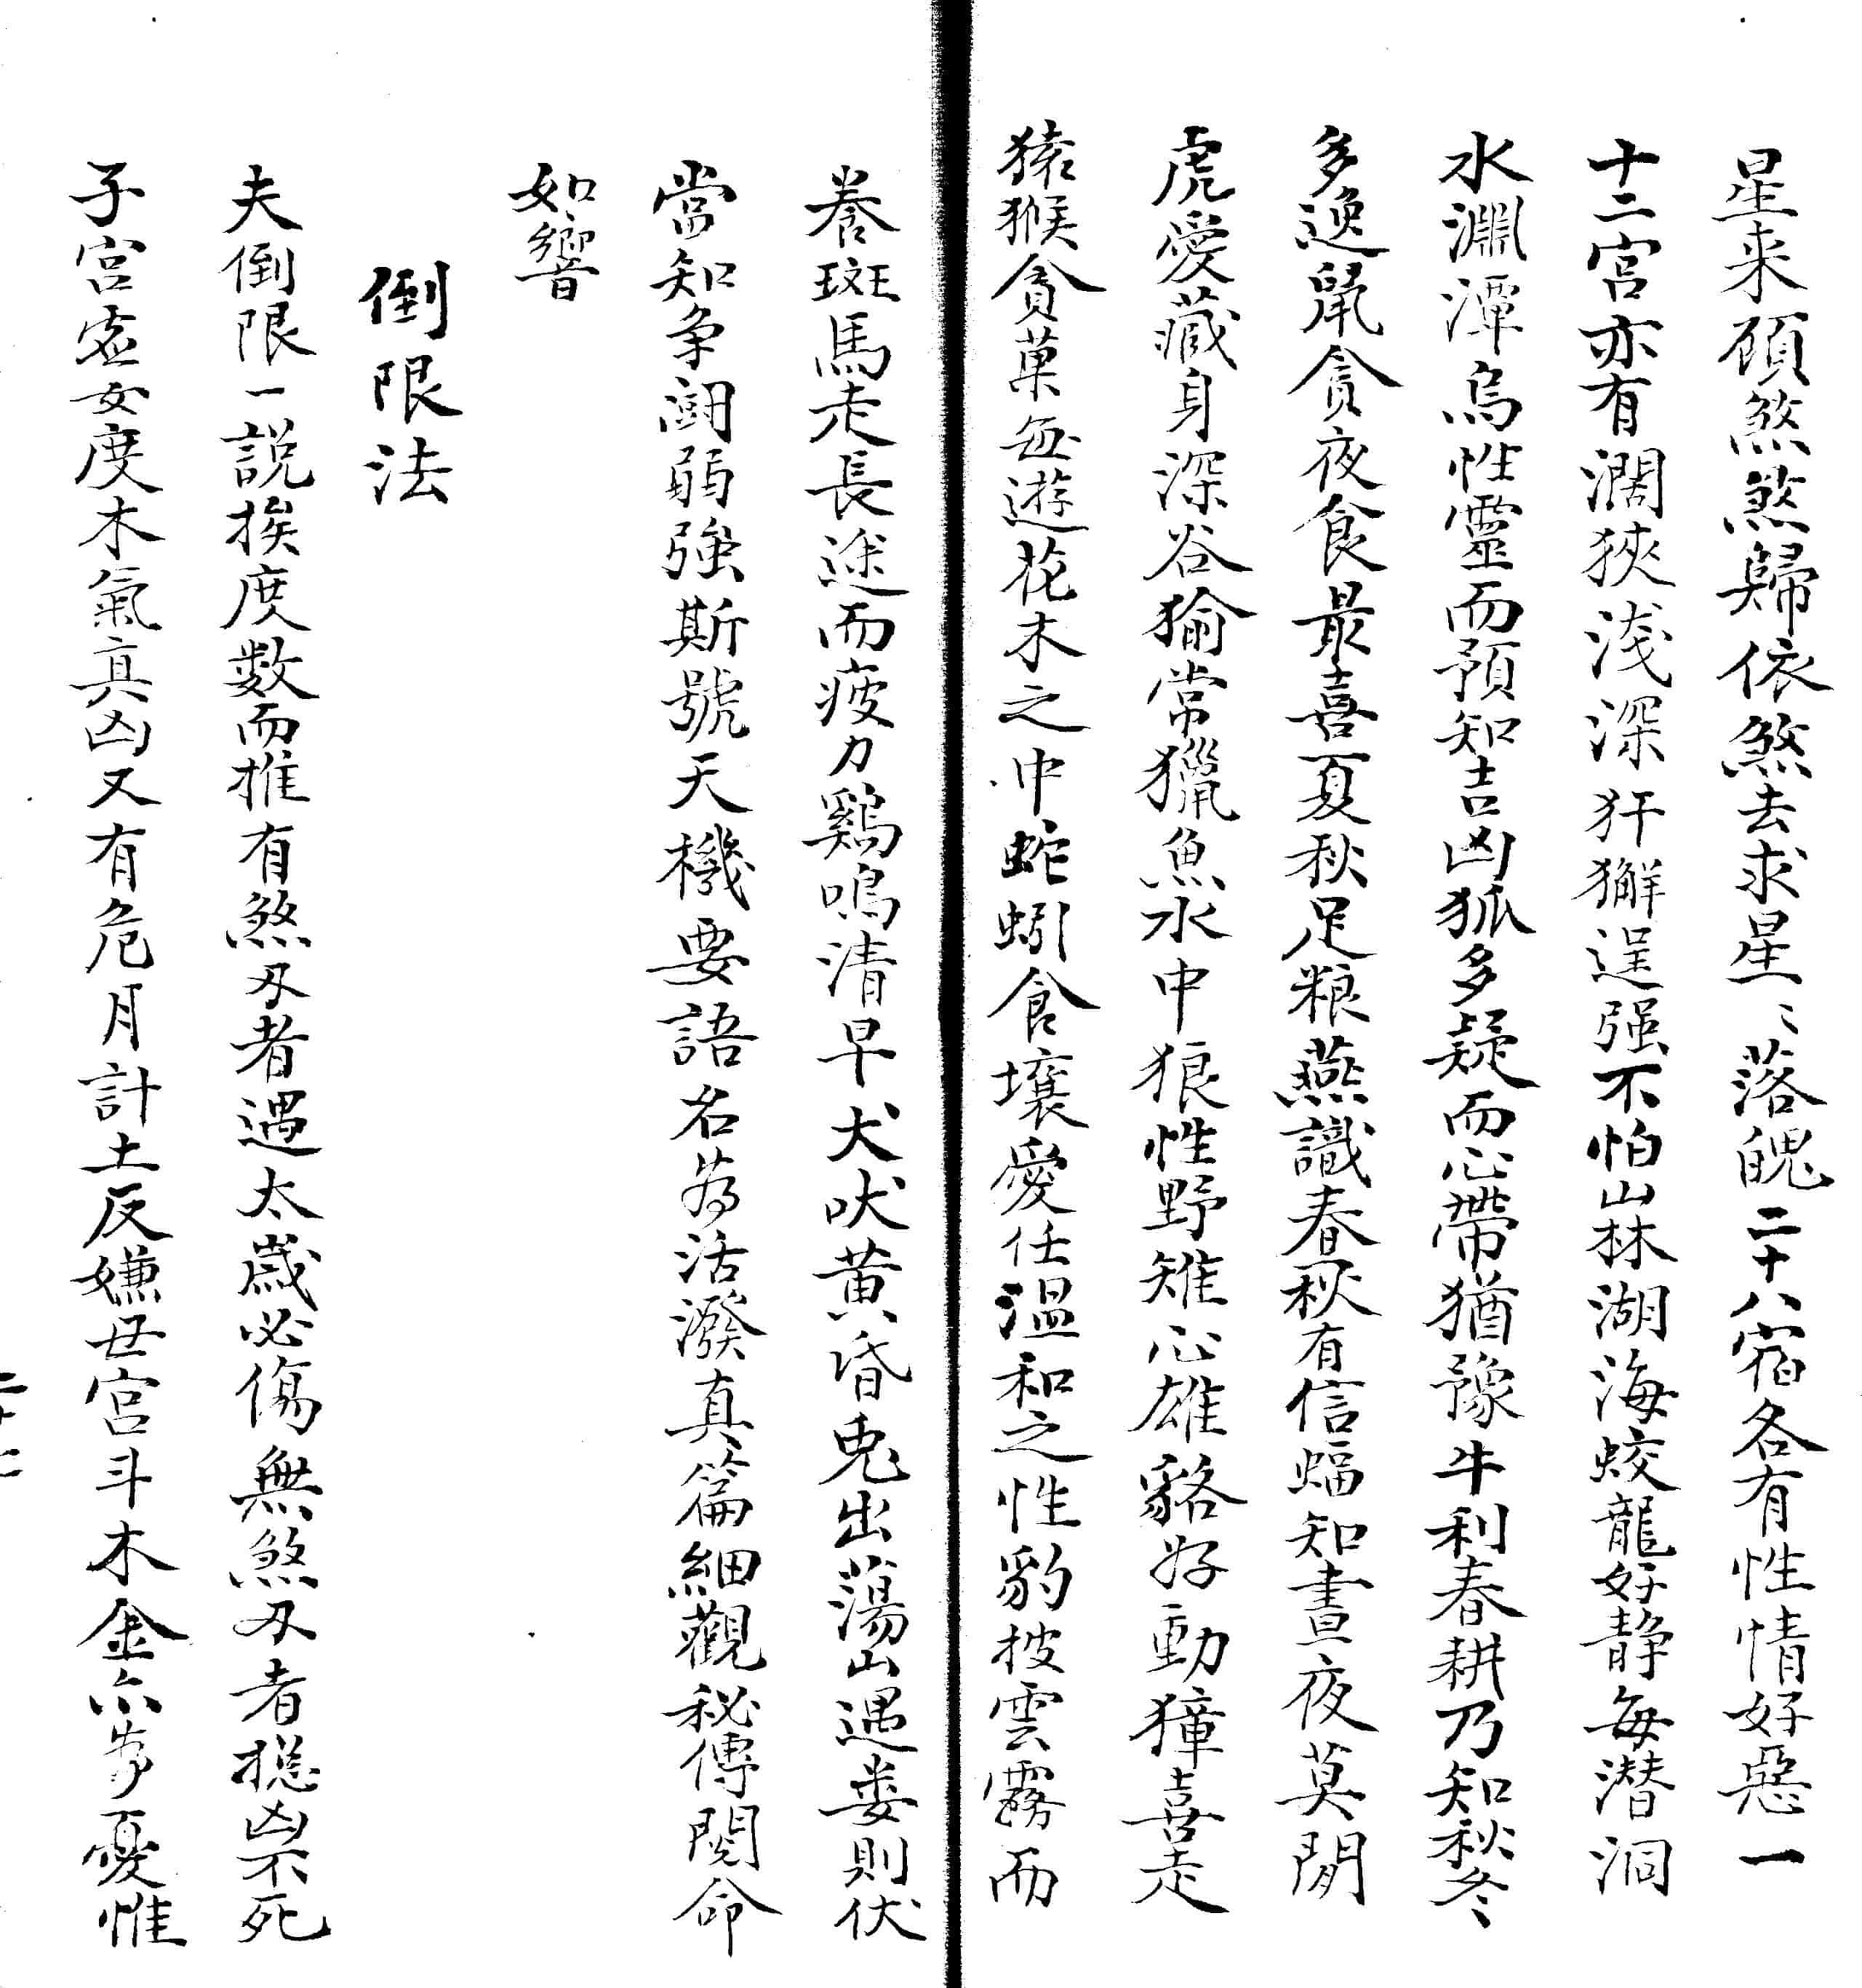 星来頋煞煞歸依煞去求星〻落魄二十八宿各有性情好惡一
十二宮亦有濶狹淺深犴獬逞强不怕山林湖海蛟龍好静每潜洞
水淵潭烏性靈而預知吉凶狐多疑而心帶猶豫牛利春耕乃知秋冬
多逸鼠貪夜食最喜夏秋足粮燕識春秋有信蝠知晝夜莫閒
虎愛藏身深谷㺄常獵魚水中狼性野雉心雄貉好動獐喜走
猿猴貪菓每遊花木之中蛇蚓食壤愛任温和之性豹披雲霧而
養斑馬走長途而疲力鷄鳴清早犬吠黄昏兎出蕩山遇娄則伏
當知争鬪弱強斯號天機要語名為活潑真篇細觀秘傳関命
如響
倒限法
夫倒限一説挨度數而推有煞刃者遇太歲必傷無煞刃者揔凶不死
子宮虚女度木氣真凶又有危月計土反嫌丗宮斗木金亦為憂惟
二十二